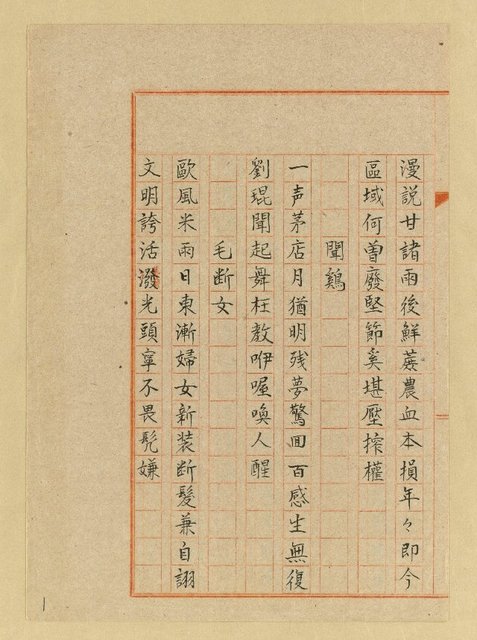 漫說甘諸雨後鮮蔗農血本損年々即今
區域何曽廢堅節奚堪壓搾權
聞鷄
一声茅店月猶明残夢驚囬百感生無復
劉琨聞起舞枉教咿喔喚人醒
毛断女
歐風米雨日東漸婦女新装断髮兼自詡
文明誇活潑光頭寧不畏髠嫌
1